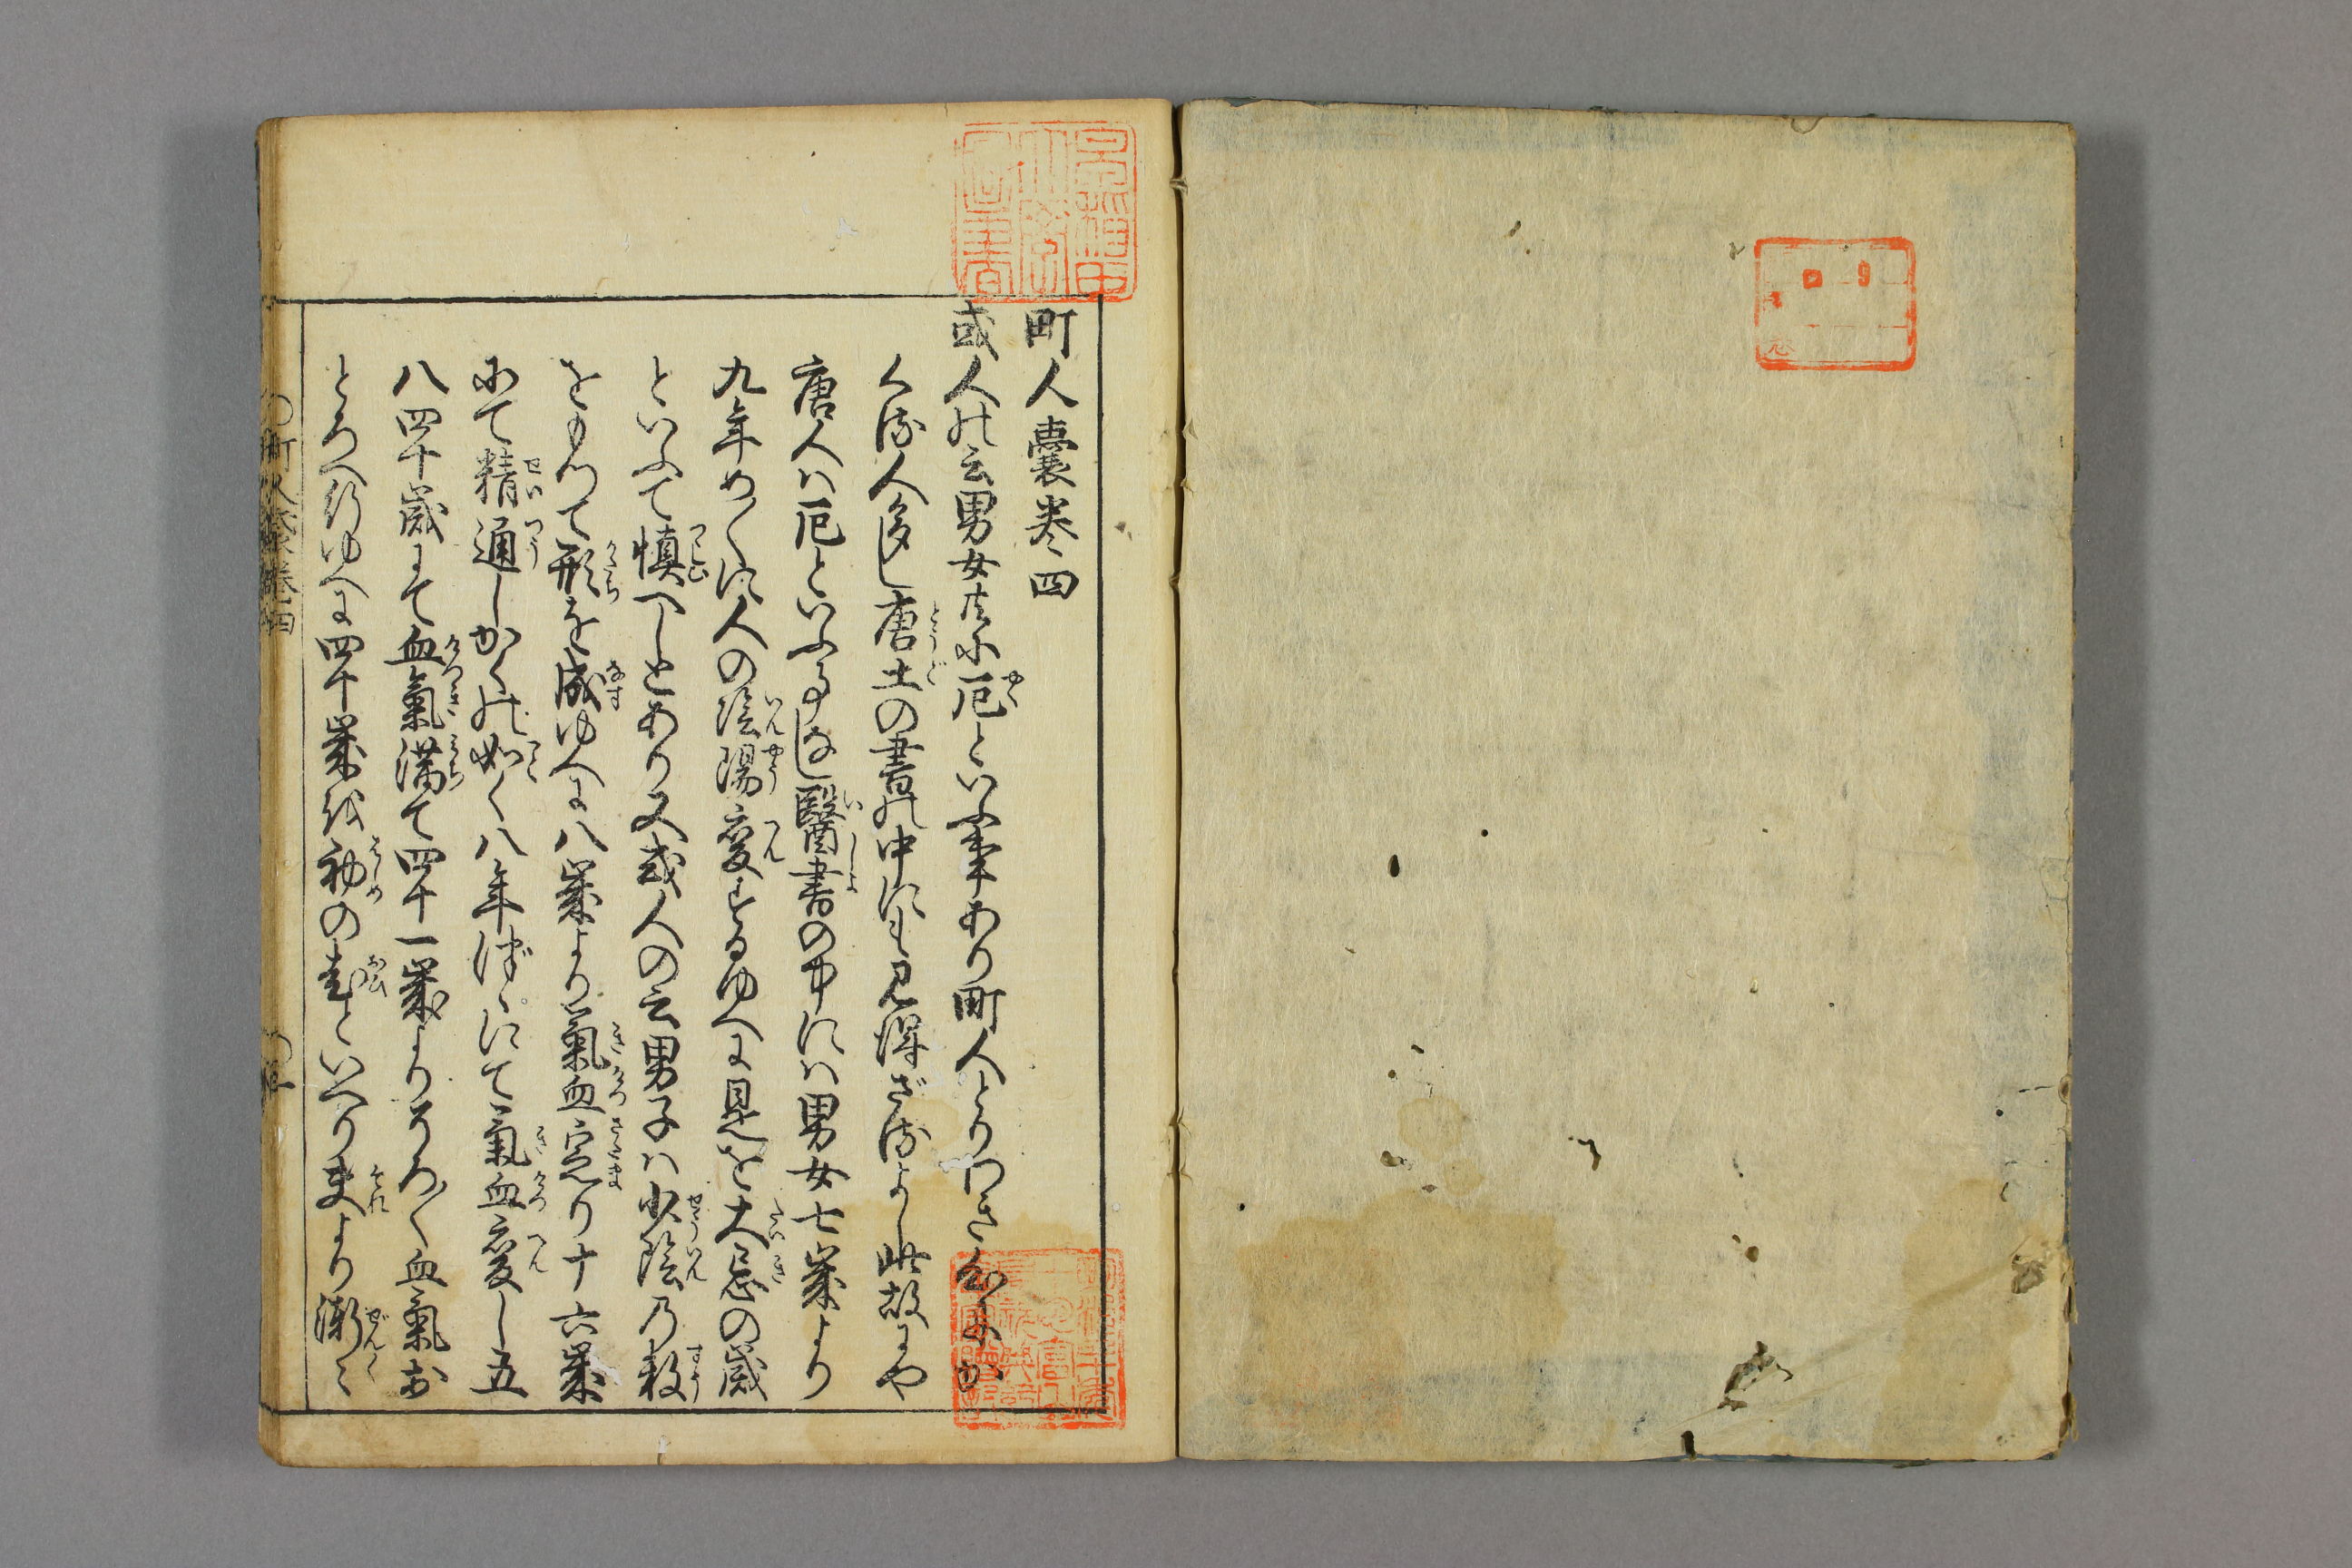 町人嚢巻四
或人の云男女共に厄といふ事あり町人とりわき忌か
くる人多し唐土の書の中にも見得ざるよし此故にや
唐人ハ厄といふ事なし醫書の中にハ男女七歳より
九年め〳〵に人の陰陽変ずるゆへに是を大忌の歳
といふて慎へしとあり又或人の云男子ハ少陰の数
をもつて形を成ゆへに八歳より氣血定り十六歳
にて精通しかくの如く八年づゝにて氣血変し五
八四十歳にて血氣満て四十一歳よりそろ〳〵血氣お
とろへ行ゆへに四十歳を初の老といへり夫より漸々
町人嚢巻四